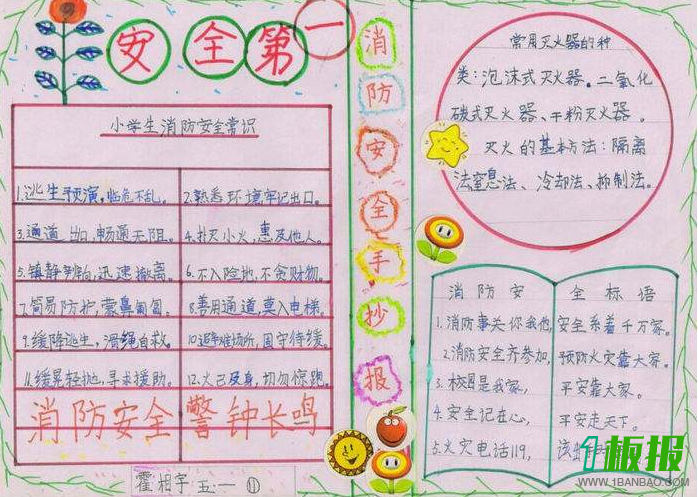 安全第一
小学生消防安全常识
1.逃生预演,临危不乱。
2.熟悉环境牢记出口。
3.通道出口,畅通无阻。
4.扑灭小火,惠及他人。
5.镇静辨向,迅速撤离。
6.不入险地,不贪财物。
7.简易防护,蒙鼻匍匐。
8.善用通道,莫入电梯。
9.缓降逃生,滑绳自救。
10.避难场所,固守待缓。
11.缓晃轻抛,寻求援助。
12.火已及身,切勿惊跑。
消防安全 警钟长鸣
霍相宇 五.一 ⑪
消防安全手抄报
常用灭火器的种
类:泡沫式灭火器.二氧化
碳式灭火器、干粉灭火器.
灭火的基本方法:隔离
法窒息法、冷却法、抑制法。
消防安全标语
1.消防事关你我他,安全系着千万家。
2.消防安全齐参加,预防火灾靠大家。
3.校园是我家,平安靠大家。
4.安全记在心,平安走天下。
5.火灾电话119,该
1板报
WWW.1BANBAO.COM